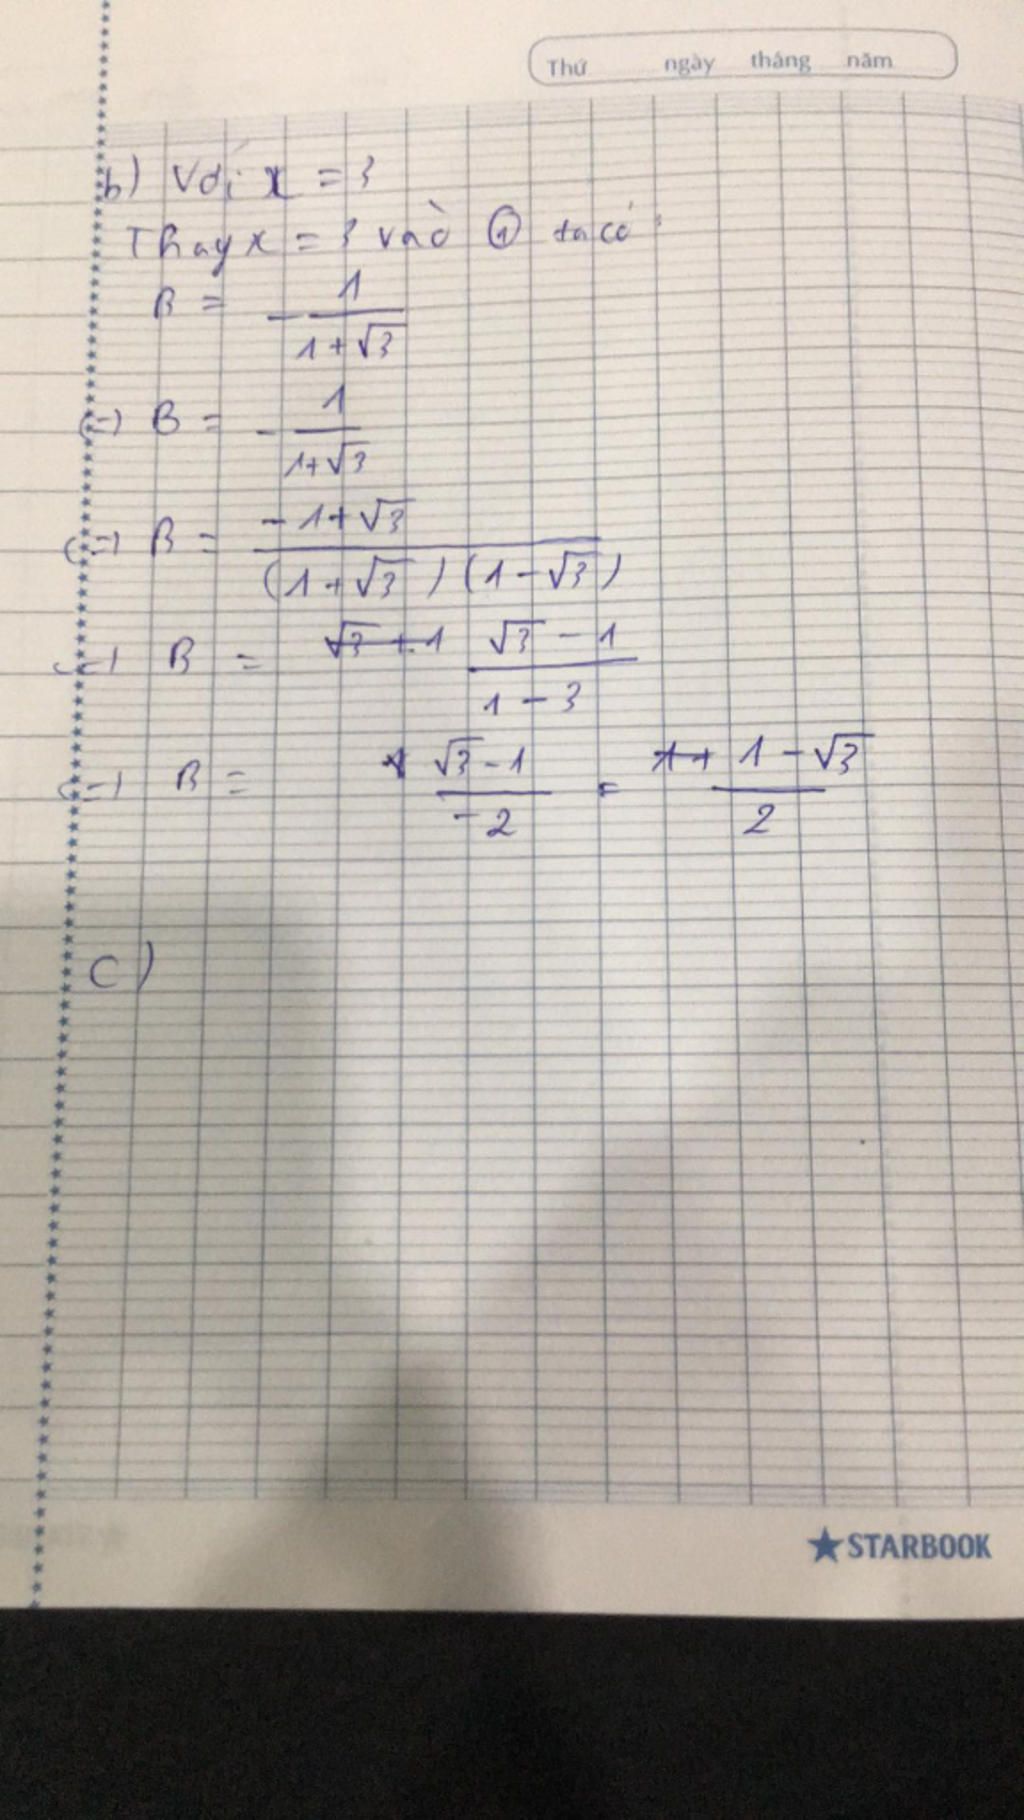 Thứ ngày tháng năm
b) Với x = 3
Thay x = 3 vào ① ta có:
B = - 1 / (1 + √3)
(=) B = - 1 / (1+√3)
(=) B = (- 1 + √3) / ((1 + √3) (1 - √3))
(=) B = √3 + 1 (√3 - 1) / (1 - 3)
(=) B = (√3 - 1) / (- 2) = (1 - √3) / 2
c)
STARBOOK